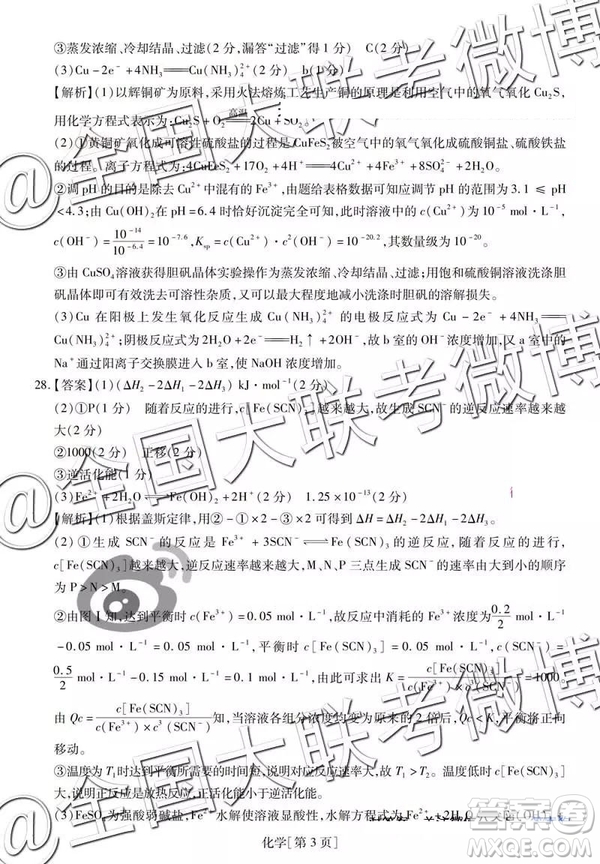 ③蒸发浓缩、冷却结晶、过滤(2 分,漏答“过滤”得 1 分) C(2 分)
(3)Cu-2e⁻+4NH₃═Cu(NH₃)₄²⁺(2 分) b(1 分)
【解析】(1)以辉铜矿为原料,采用火法熔炼工艺生产铜的原理是利用空气中的氧气氧化 Cu₂S,
用化学方程式表示为:Cu₂S+O₂ 高温 2Cu+SO₂
(2)①黄铜矿氧化成可溶性硫酸盐的过程是 CuFeS₂ 被空气中的氧气氧化成硫酸铜盐、硫酸铁盐
的过程。离子方程式为:4CuFeS₂+17O₂+4H⁺═4Cu²⁺+4Fe³⁺+8SO₄²⁻+2H₂O
②调 pH 的目的是除去 Cu²⁺中混有的 Fe³⁺,由题给表格数据可知应调节 pH 的范围为 3.1 ≤ pH
<4.3;由 Cu(OH)₂ 在 pH=6.4 时恰好沉淀完全可知,此时溶液中 c(Cu²⁺)为 10⁻⁵ mol·L⁻¹,
c(OH⁻)=10⁻¹⁴/10⁻⁶·⁴=10⁻⁷·⁶,Ksp=c(Cu²⁺)·c²(OH⁻)=10⁻²⁰·²,其数量级为 10⁻²⁰。
③由 CuSO₄ 溶液获得胆矾晶体实验操作为蒸发浓缩、冷却结晶、过滤;用饱和硫酸铜溶液洗涤胆
矾晶体即可有效洗去可溶性杂质,又可以最大程度地减小洗涤时胆矾的溶解损失。
(3)Cu 在阳极上发生氧化反应生成 Cu(NH₃)₄²⁺ 的电极反应式为 Cu-2e⁻+4NH₃═
Cu(NH₃)₄²⁺;阴极反应式为 2H₂O+2e⁻═H₂↑+2OH⁻,因此 b 室的 OH⁻浓度增加,又 a 室中的
Na⁺通过阳离子交换膜进入 b 室,使 NaOH 浓度增加。
28.【答案】(1)(ΔH₂-2ΔH₁-2ΔH₃) kJ·mol⁻¹(2 分)
(2)①P(1 分) 随着反应的进行,c[Fe(SCN)₃]越来越大,故生成 SCN⁻的逆反应速率越来越
大(2 分)
②1000(2 分) 正移(2 分)
③逆活化能(1 分)
(3)Fe²⁺+2H₂O⇌Fe(OH)₂+2H⁺(2 分) 1.25×10⁻¹³(2 分)
【解析】(1)根据盖斯定律,用②-①×2-③×2 可得到 ΔH=ΔH₂-2ΔH₁-2ΔH₃。
(2)①生成 SCN⁻的反应是 Fe³⁺+3SCN⁻⇌Fe(SCN)₃ 的逆反应,随着反应的进行,
c[Fe(SCN)₃]越来越大,逆反应速率越来越大,M、N、P 三点生成 SCN⁻的速率由大到小的顺序
为 P>N>M。
②由图 1 知,达到平衡时 c(Fe³⁺)=0.05 mol·L⁻¹,故反应中消耗的 Fe³⁺浓度为 0.2/2 mol·L⁻¹
-0.05 mol·L⁻¹=0.05 mol·L⁻¹,平衡时 c[Fe(SCN)₃]=0.05 mol·L⁻¹,c(SCN⁻)=
0.5/2 mol·L⁻¹-0.15 mol·L⁻¹=0.1 mol·L⁻¹,由此可求出 K=c[Fe(SCN)₃]/c(Fe³⁺)×c³(SCN⁻)=1000。
由 Qc=c[Fe(SCN)₃]/c(Fe³⁺)×c³(SCN⁻)可知,当溶液各组分浓度均变为原来的 2 倍后,Qc<K,平衡正向
移动。
③温度为 T₁时达到平衡所需要的时间短,说明对应反应速率大,故 T₁>T₂。温度高,c[Fe(SCN)₃]
大,说明正反应是放热反应,正活化能小于逆活化能。
(3)FeSO₄为强酸弱碱盐,Fe²⁺水解使溶液显酸性,水解方程式为 Fe²⁺+2H₂O
化学[第 3 页]
@全国大联考微博
@全国大联考微博
@全国大联考微博